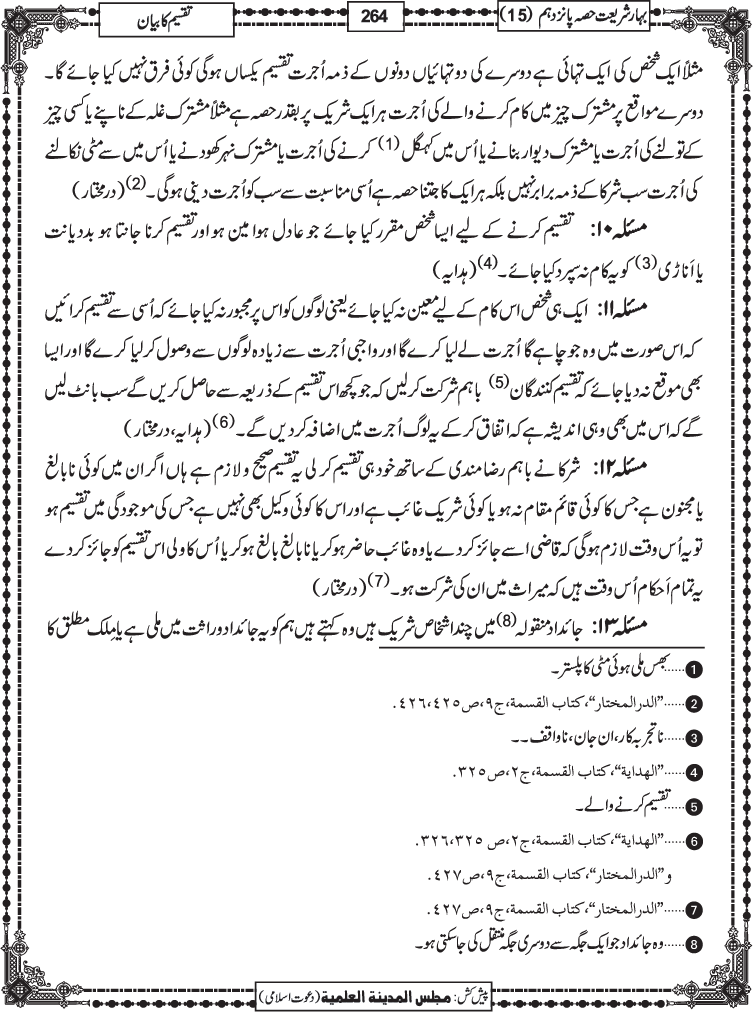 بہارِ شریعت حصہ پانزدہم (15)
264
تقسیم کا بیان
مثلاً ایک شخص کی ایک تہائی ہے دوسرے کی دو تہائیاں دونوں کے ذمہ اُجرت تقسیم یکساں ہوگی کوئی فرق نہیں کیا جائے گا۔
دوسرے مواقع پر مشترک چیز میں کام کرنے والے کی اُجرت ہر ایک شریک پر بقدر حصہ ہے مثلاً مشترک غلہ کے ناپنے یا کسی چیز
کے تولنے کی اُجرت یا مشترک دیوار بنانے یا اُس میں کہگل (1) کرنے کی اُجرت یا مشترک نہر کھودنے یا اُس میں سے مٹی نکالنے
کی اُجرت سب شرکا کے ذمہ برابر نہیں بلکہ ہر ایک کا جتنا حصہ ہے اُسی مناسبت سے سب کو اُجرت دینی ہوگی۔(2) (درمختار)
مسئلہ ۱۰: تقسیم کرنے کے لیے ایسا شخص مقرر کیا جائے جو عادل ہو امین ہو اور تقسیم کرنا جانتا ہو بددیانت
یا اَناڑی (3) کو یہ کام نہ سپرد کیا جائے۔(4) (ہدایہ)
مسئلہ ۱۱: ایک ہی شخص اس کام کے لیے معین نہ کیا جائے یعنی لوگوں کو اس پر مجبور نہ کیا جائے کہ اُسی سے تقسیم کرائیں
کہ اس صورت میں وہ جو چاہے گا اُجرت لے لیا کرے گا اور واجبی اُجرت سے زیادہ لوگوں سے وصول کر لیا کرے گا اور ایسا
بھی موقع نہ دیا جائے کہ تقسیم کنندگان (5) باہم شرکت کرلیں کہ جو کچھ اس تقسیم کے ذریعہ سے حاصل کریں گے سب بانٹ لیں
گے کہ اس میں بھی وہی اندیشہ ہے کہ اتفاق کر کے یہ لوگ اُجرت میں اضافہ کر دیں گے۔(6) (ہدایہ، درمختار)
مسئلہ ۱۲: شرکا نے باہم رضا مندی کے ساتھ خود ہی تقسیم کر لی یہ تقسیم صحیح و لازم ہے ہاں اگر ان میں کوئی نابالغ
یا مجنون ہے جس کا کوئی قائم مقام نہ ہو یا کوئی شریک غائب ہے اور اس کا کوئی وکیل بھی نہیں ہے جس کی موجودگی میں تقسیم ہو
تو یہ اُس وقت لازم ہوگی کہ قاضی اسے جائز کر دے یا وہ غائب حاضر ہو کر یا نابالغ بالغ ہو کر یا اُس کا ولی اس تقسیم کو جائز کر دے
یہ تمام اَحکام اُس وقت ہیں کہ میراث میں ان کی شرکت ہو۔(7) (درمختار)
مسئلہ ۱۳: جائداد منقولہ (8) میں چند اشخاص شریک ہیں وہ کہتے ہیں ہم کو یہ جائداد وراثت میں ملی ہے یا مِلک مطلق کا
1......بھس ملی ہوئی مٹی کا پلستر۔
2......”الدرالمختار“،کتاب القسمة،ج٩،ص٤٢٥،٤٢٦.
3......ناتجربہ کار، ان جان، ناواقف۔۔
4......”الهداية“،کتاب القسمة،ج٢،ص٣٢٥.
5......تقسیم کرنے والے۔
6......”الهداية“،کتاب القسمة،ج٢،ص ٣٢٥،٣٢٦.
و”الدرالمختار“،کتاب القسمة،ج٩،ص٤٢٧.
7......”الدرالمختار“،کتاب القسمة،ج٩،ص٤٢٧.
8......وہ جائداد جو ایک جگہ سے دوسری جگہ منتقل کی جاسکتی ہو۔
پیش کش: مجلس المدينة العلمية (دعوت اسلامی)